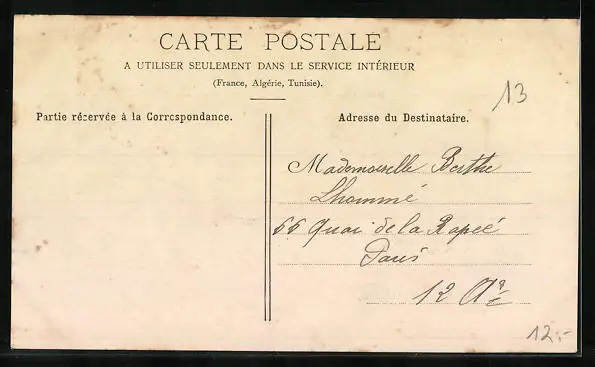 CARTE POSTALE
A UTILISER SEULEMENT DANS LE SERVICE INTÉRIEUR
(France, Algérie, Tunisie).
13
Partie réservée à la Correspondance.
Adresse du Destinataire.
Mademoiselle Berthe
Lhommé
66 Quai de la Rapée
Paris
12 Ar
12.-